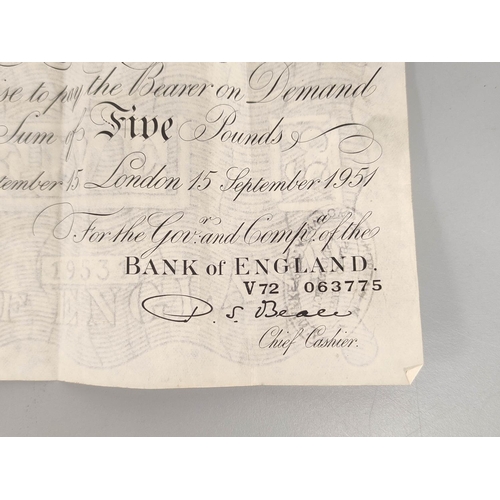 ise to pay the Bearer on Demand
Sum of Five Pounds
tember 15 London 15 September 1951
For the Govr. and Compa. of the
BANK of ENGLAND.
V72 063775
P. S. Beale
Chief Cashier.